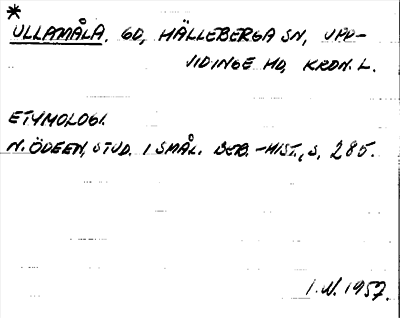 *
ULLAMÅLA. GD, HÄLLEBERGA SN, UPP-
VIDINGE HD, KRON. L.
ETYMOLOGI.
N. ÖDEEN, STUD. I SMÅL. BEB.-HIST., S. 285.
I.N. 1957.